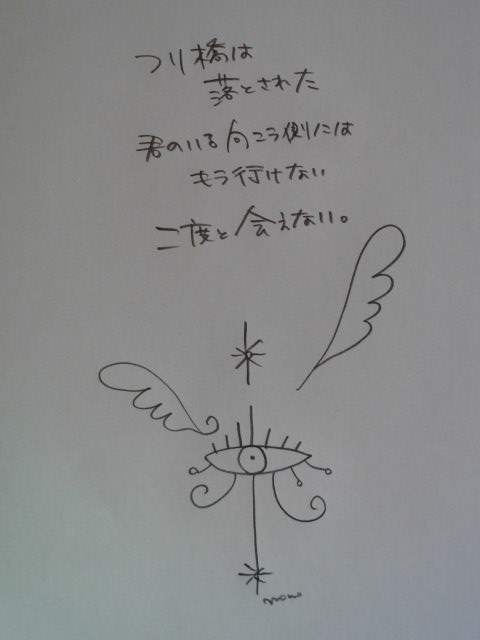 つり橋は
落とされた
君のいる向こう側には
もう行けない
二度と会えない。
momo